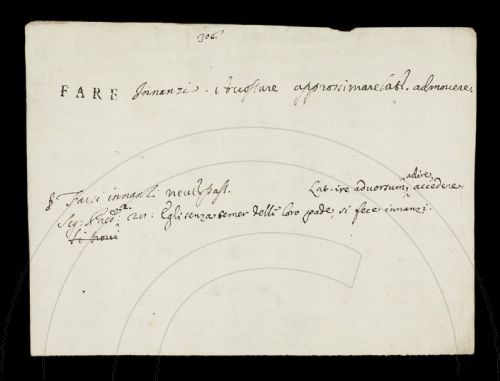 306.
FARE Innanzi. Accostare approssimare Lat. admovere.
§ Farsi innanzi neut. pass. Lat. ire adversum, adire, accedere.
Seg. 201: Egli senza temer delli loro pade, si fece innanzi.